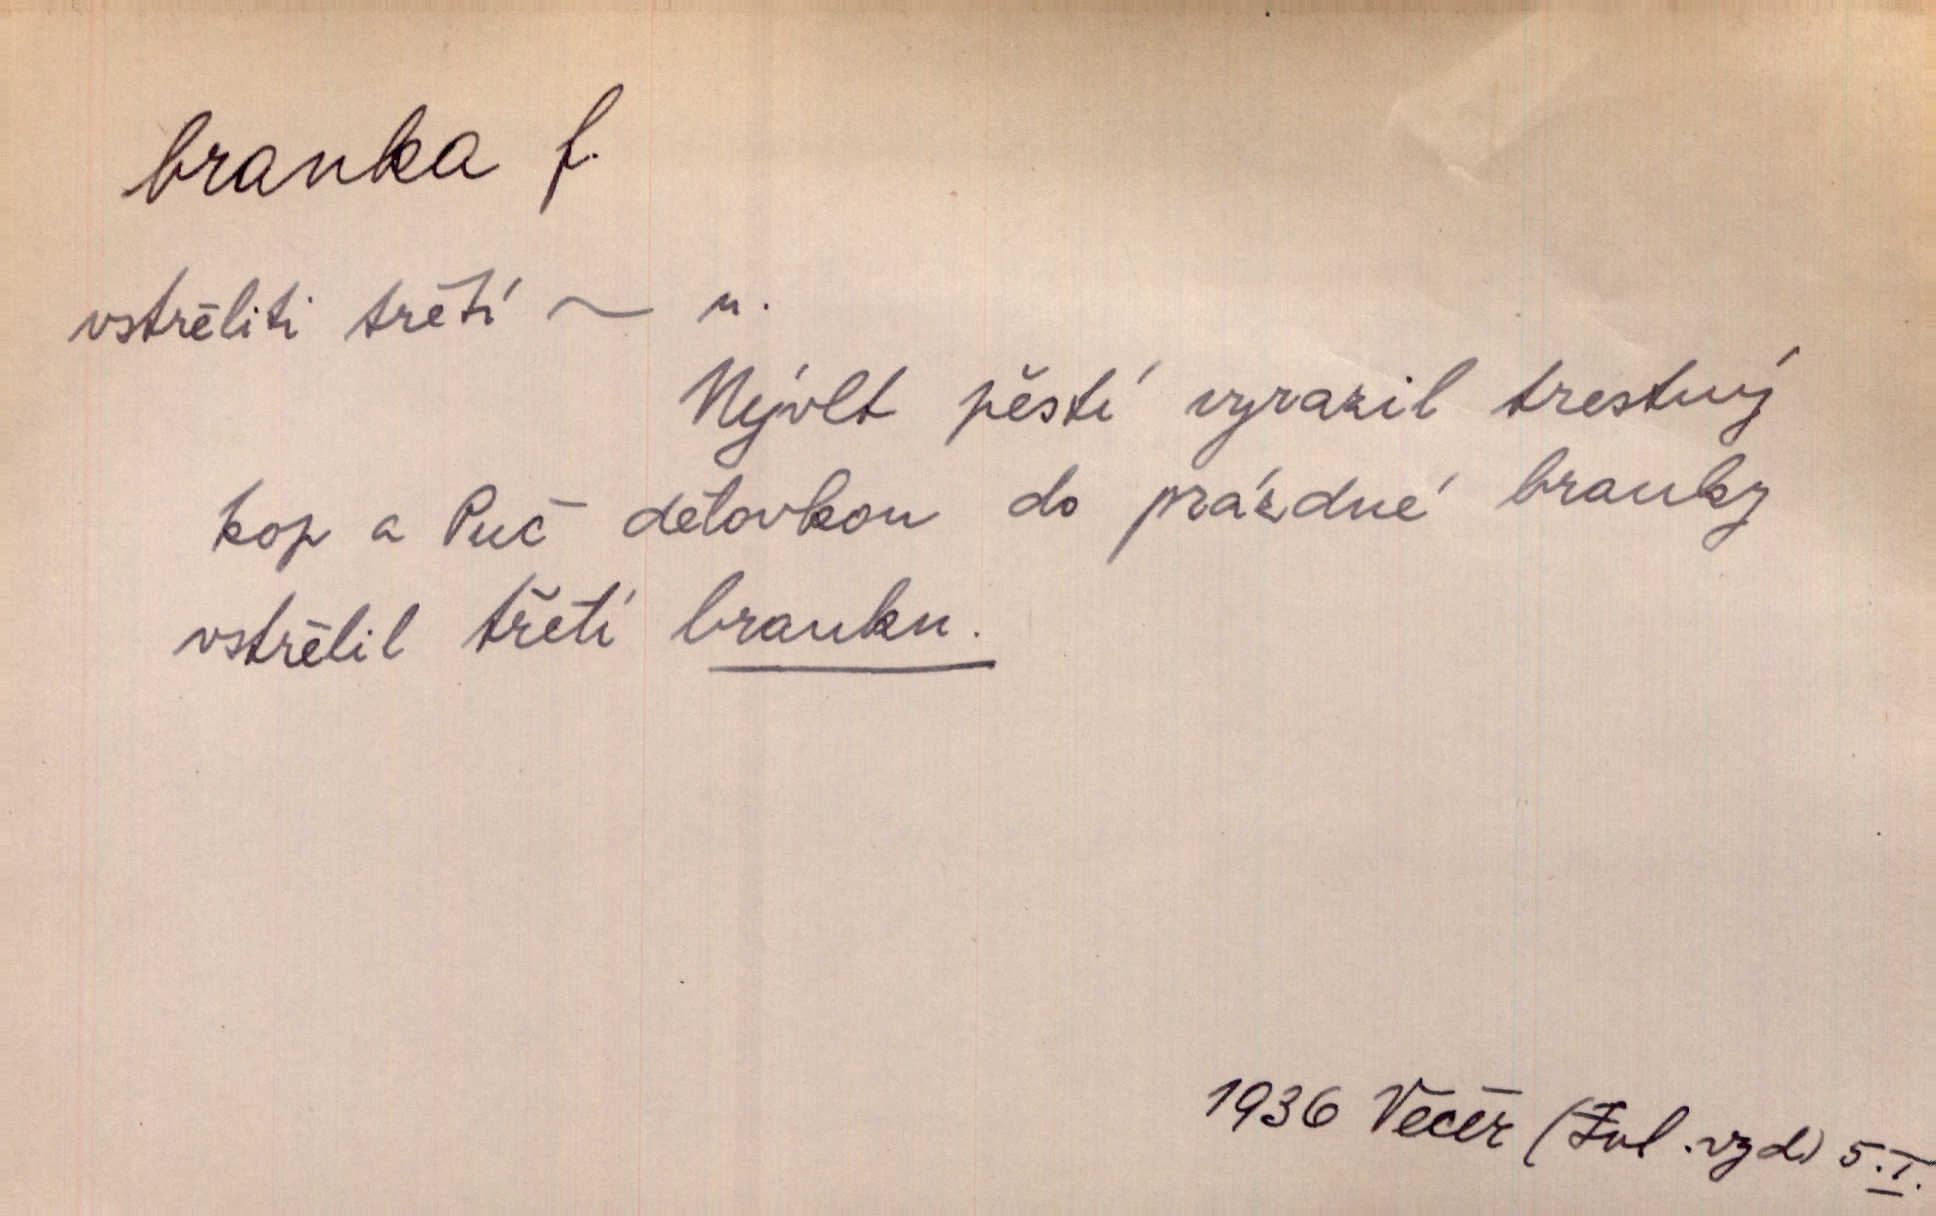 branka f.
vstřeliti třetí ~ u.
Nývlt pěstí vyrazil trestný
kop a Puč dělovkou do prázdné branky
vstřelil třetí branku.
1936 Večer (Zvl. vyd.) 5.I.